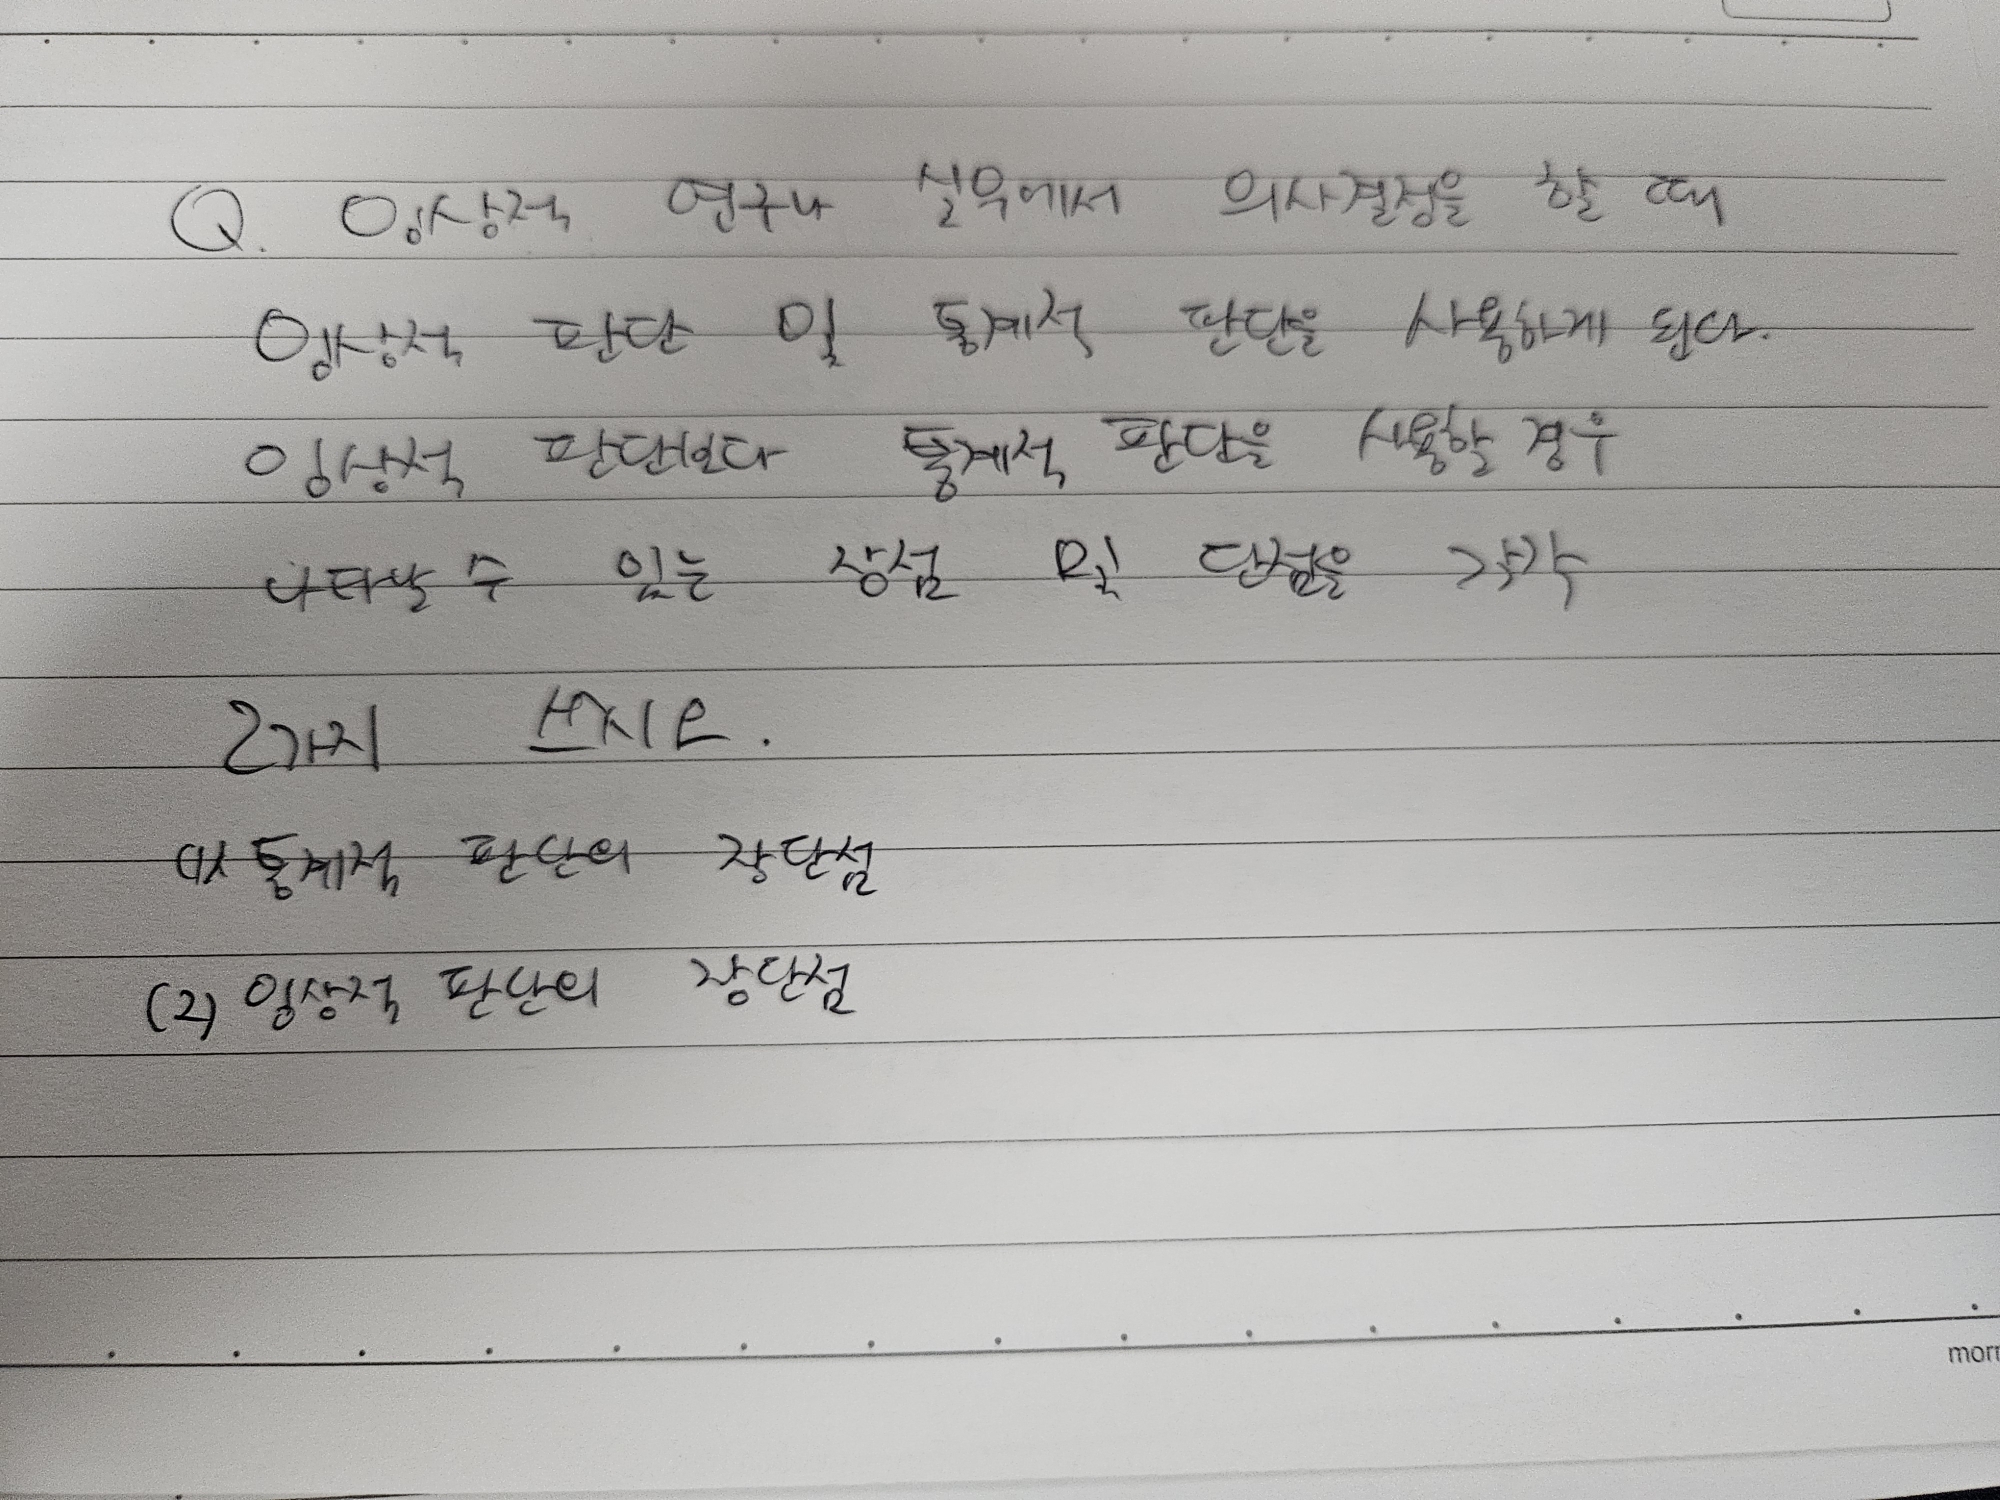 Q. 임상적 연구나 실무에서 의사결정을 할 때
임상적 판단 및 통계적 판단을 사용하게 된다.
임상적 판단보다 통계적 판단을 사용할 경우
나타날 수 있는 장점 및 단점을 각각
2가지 쓰시오.
(1) 통계적 판단의 장단점
(2) 임상적 판단의 장단점